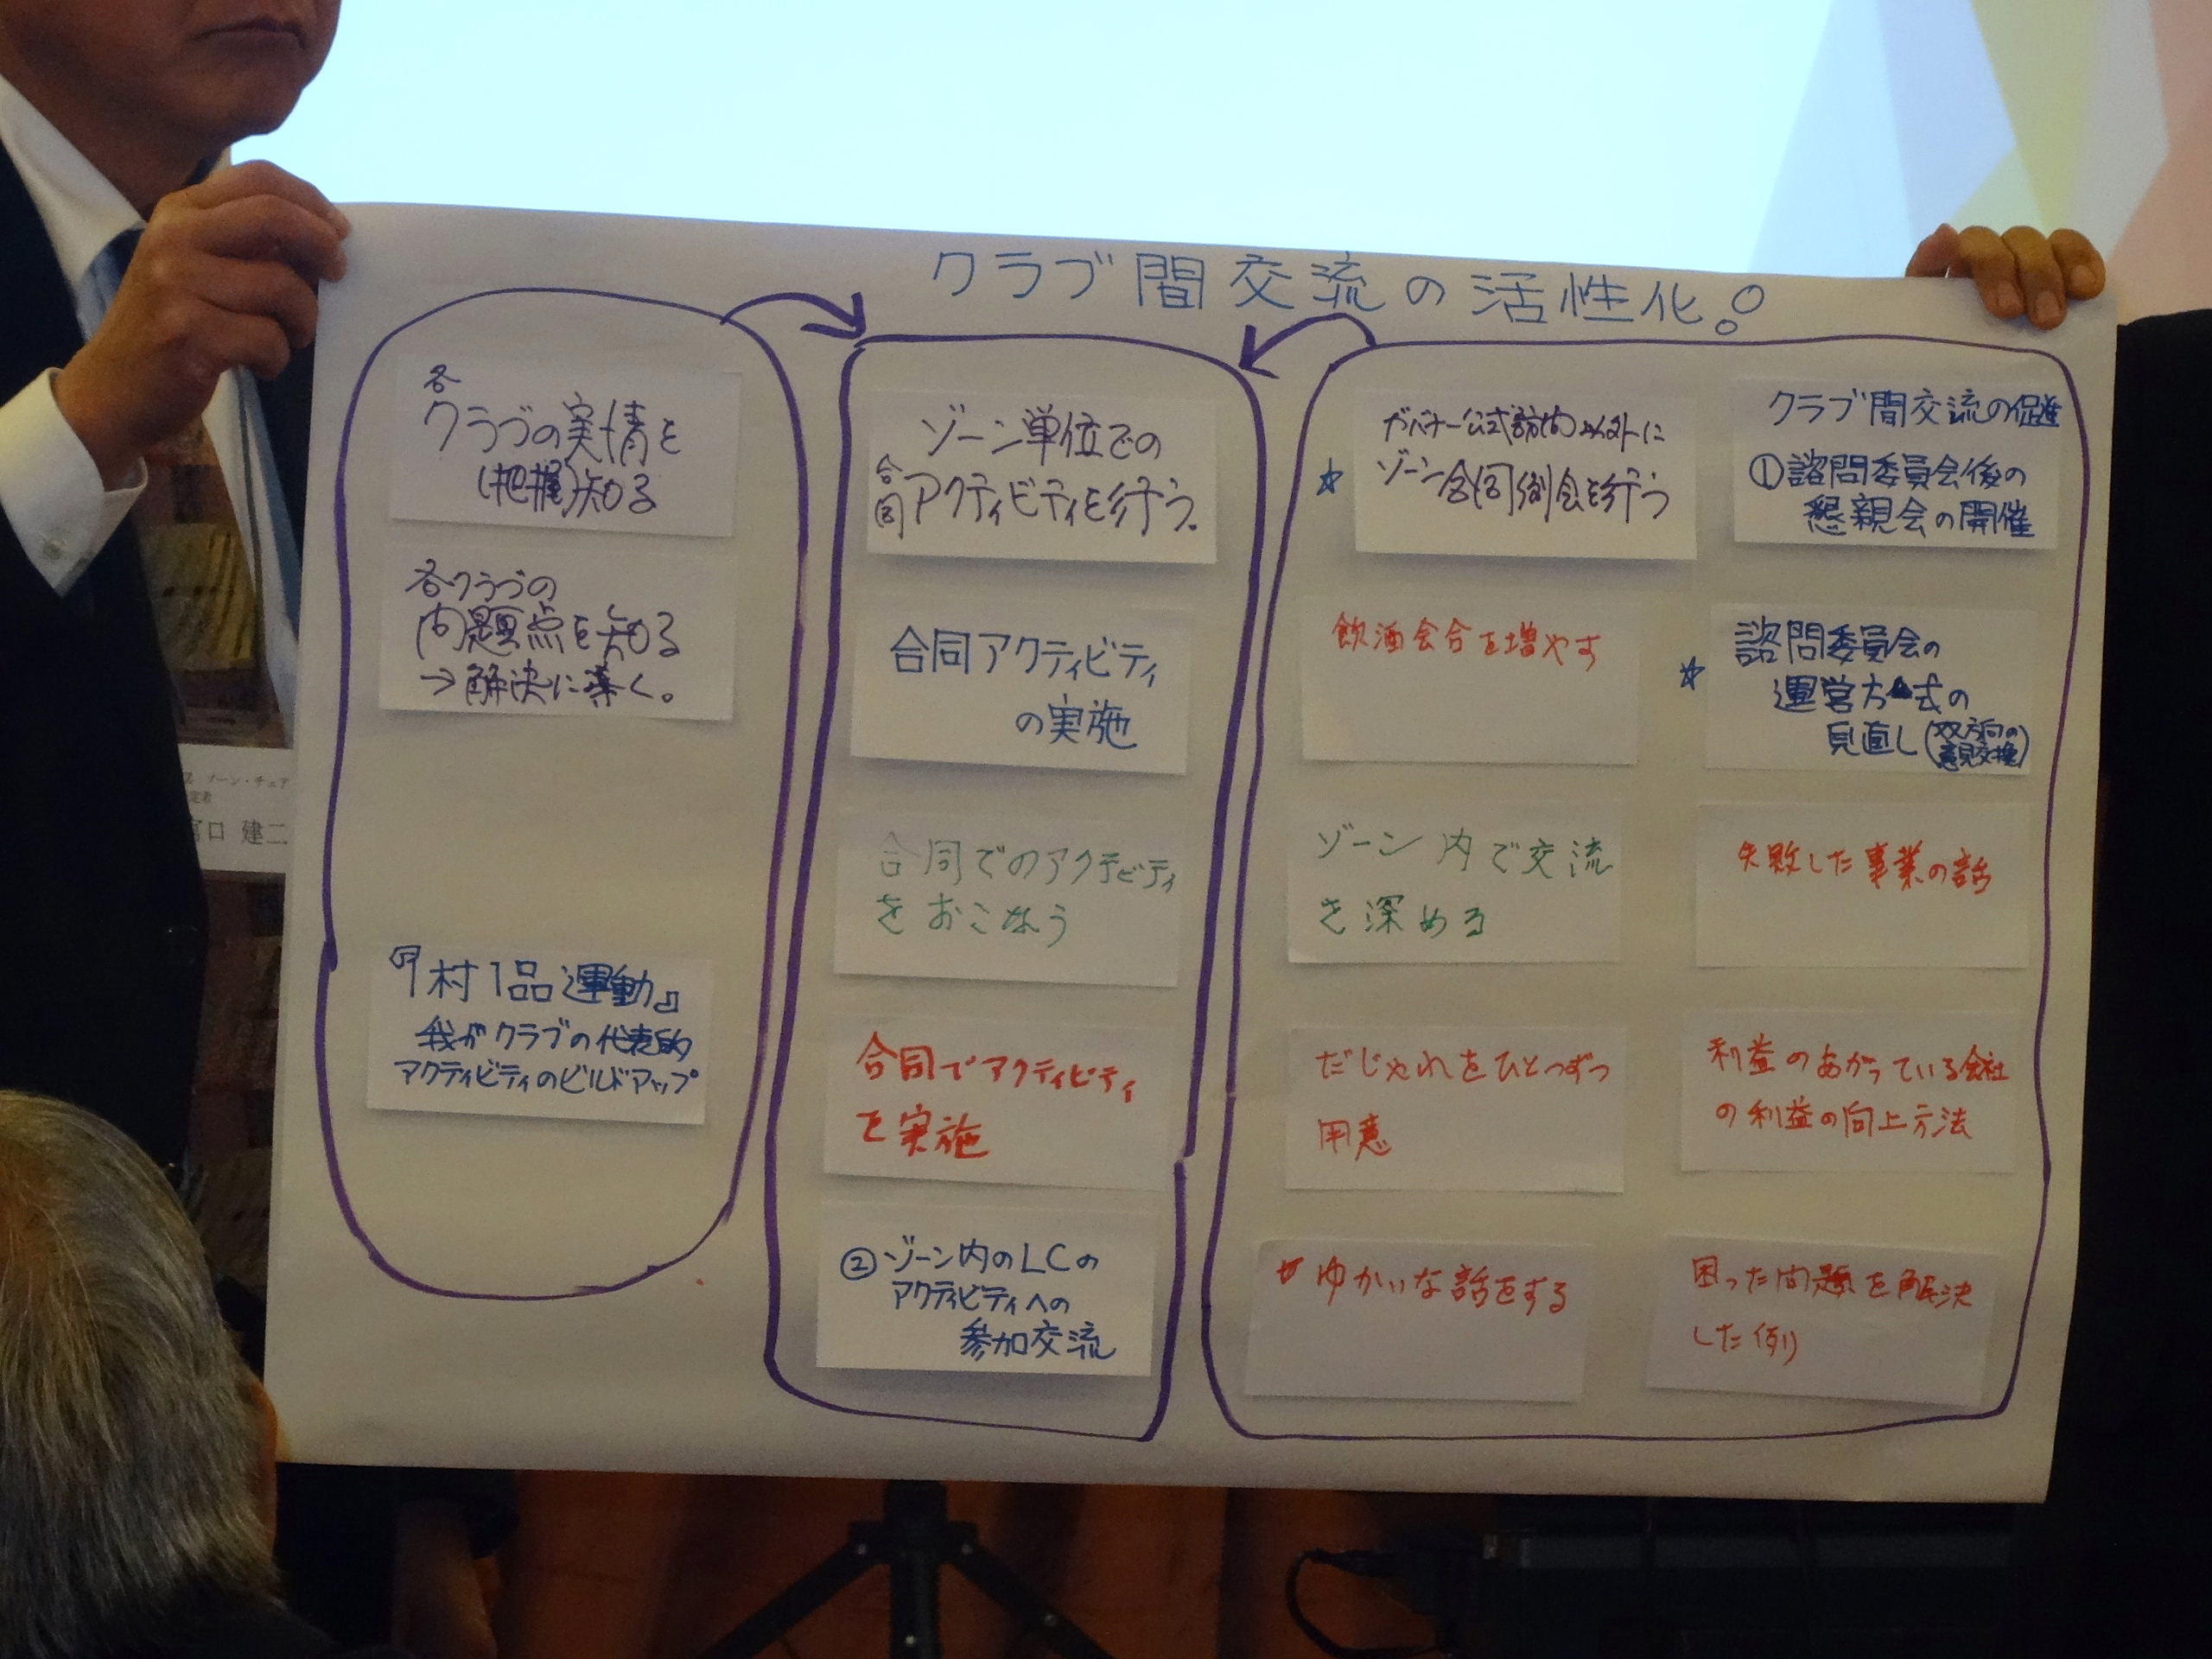 クラブ間交流の活性化!
各
クラブの実情を
(把握)知る
各クラブの
問題点を知る
→解決に導く。
『1村1品運動』
我がクラブの代表的
アクティビティのビルドアップ
ゾーン単位での
合同アクティビティを行う。
合同アクティビティ
の実施
合同でのアクテビティ
をおこなう
合同でアクティビティ
を実施
②ゾーン内のLCの
アクティビティへの
参加交流
ガバナー公式訪問以外に
☆ゾーン合同例会を行う
飲酒会合を増やす
ゾーン内で交流
を深める
だじゃれをひとつずつ
用意
ゆかいな話をする
クラブ間交流の促進
①諮問委員会後の
懇親会の開催
☆諮問委員会の
運営方式の
見直し(双方向の
意見交換)
失敗した事業の話
利益のあがっている会社
の利益の向上方法
困った問題を解決
した例
ゾーン・チェア
宮口 建二